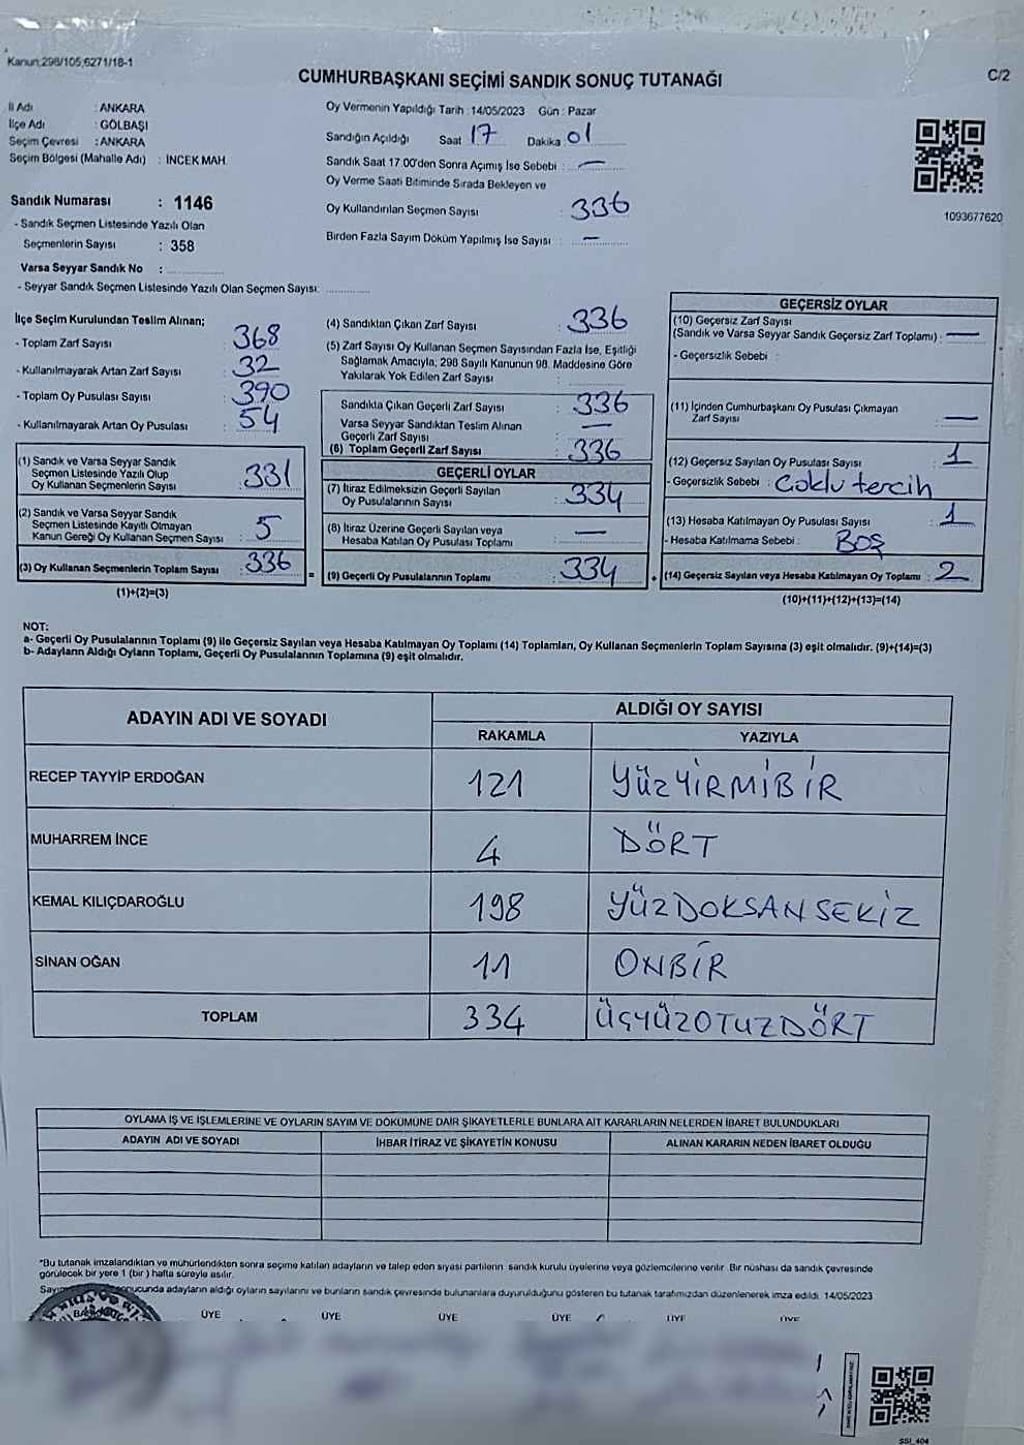 Kanun:298/105;6271/18-1
CUMHURBAŞKANI SEÇİMİ SANDIK SONUÇ TUTANAĞI
C/2
İl Adı : ANKARA
İlçe Adı : GÖLBAŞI
Seçim Çevresi : ANKARA
Seçim Bölgesi (Mahalle Adı) : İNCEK MAH.
Oy Vermenin Yapıldığı Tarih : 14/05/2023 Gün : Pazar
Sandığın Açıldığı Saat 17 Dakika 01
Sandık Saat 17.00'den Sonra Açımış İse Sebebi : —
Oy Verme Saati Bitiminde Sırada Bekleyen ve
Oy Kullandırılan Seçmen Sayısı : 336
Birden Fazla Sayım Döküm Yapılmış İse Sayısı : —
1093677620
Sandık Numarası : 1146
- Sandık Seçmen Listesinde Yazılı Olan
Seçmenlerin Sayısı : 358
Varsa Seyyar Sandık No :
- Seyyar Sandık Seçmen Listesinde Yazılı Olan Seçmen Sayısı:
İlçe Seçim Kurulundan Teslim Alınan;
- Toplam Zarf Sayısı : 368
- Kullanılmayarak Artan Zarf Sayısı : 32
- Toplam Oy Pusulası Sayısı : 390
- Kullanılmayarak Artan Oy Pusulası : 54
(1) Sandık ve Varsa Seyyar Sandık
Seçmen Listesinde Yazılı Olup
Oy Kullanan Seçmenlerin Sayısı : 331
(2) Sandık ve Varsa Seyyar Sandık
Seçmen Listesinde Kayıtlı Olmayan
Kanun Gereği Oy Kullanan Seçmen Sayısı : 5
(3) Oy Kullanan Seçmenlerin Toplam Sayısı : 336
(1)+(2)=(3)
(4) Sandıktan Çıkan Zarf Sayısı : 336
(5) Zarf Sayısı Oy Kullanan Seçmen Sayısından Fazla İse, Eşitliği
Sağlamak Amacıyla, 298 Sayılı Kanunun 98. Maddesine Göre
Yakılarak Yok Edilen Zarf Sayısı :
Sandıkta Çıkan Geçerli Zarf Sayısı : 336
Varsa Seyyar Sandıktan Teslim Alınan
Geçerli Zarf Sayısı : —
(6) Toplam Geçerli Zarf Sayısı : 336
GEÇERLİ OYLAR
(7) İtiraz Edilmeksizin Geçerli Sayılan
Oy Pusulasının Sayısı : 334
(8) İtiraz Üzerine Geçerli Sayılan veya
Hesaba Katılan Oy Pusulası Toplamı : —
= (9) Geçerli Oy Pusulalarının Toplamı : 334
GEÇERSİZ OYLAR
(10) Geçersiz Zarf Sayısı
(Sandık ve Varsa Seyyar Sandık Geçersiz Zarf Toplamı) : —
- Geçersizlik Sebebi :
(11) İçinden Cumhurbaşkanı Oy Pusulası Çıkmayan
Zarf Sayısı : —
(12) Geçersiz Sayılan Oy Pusulası Sayısı : 1
- Geçersizlik Sebebi : Çoklu tercih
(13) Hesaba Katılmayan Oy Pusulası Sayısı : 1
- Hesaba Katılmama Sebebi : BOŞ
+ (14) Geçersiz Sayılan veya Hesaba Katılmayan Oy Toplamı : 2
(10)+(11)+(12)+(13)=(14)
NOT:
a- Geçerli Oy Pusulalarının Toplamı (9) ile Geçersiz Sayılan veya Hesaba Katılmayan Oy Toplamı (14) Toplamları, Oy Kullanan Seçmenlerin Toplam Sayısına (3) eşit olmalıdır. (9)+(14)=(3)
b- Adayların Aldığı Oyların Toplamı, Geçerli Oy Pusulalarının Toplamına (9) eşit olmalıdır.
ADAYIN ADI VE SOYADI
ALDIĞI OY SAYISI
RAKAMLA YAZIYLA
RECEP TAYYİP ERDOĞAN 121 YÜZYİRMİBİR
MUHARREM İNCE 4 DÖRT
KEMAL KILIÇDAROĞLU 198 YÜZDOKSANSEKİZ
SİNAN OĞAN 11 ONBİR
TOPLAM 334 ÜÇYÜZOTUZDÖRT
OYLAMA İŞ VE İŞLEMLERİNE VE OYLARIN SAYIM VE DÖKÜMÜNE DAİR ŞİKAYETLERLE BUNLARA AİT KARARLARIN NELERDEN İBARET BULUNDUKLARI
ADAYIN ADI VE SOYADI İHBAR İTİRAZ VE ŞİKAYETİN KONUSU ALINAN KARARIN NEDEN İBARET OLDUĞU
*Bu tutanak imzalandıktan ve mühürlendikten sonra seçime katılan adayların ve talep eden siyasi partilerin sandık kurulu üyelerine veya gözlemcilerine verilir. Bir nüshası da sandık çevresinde
görülecek bir yere 1 (bir) hafta süreyle asılır.
sonucunda adayların aldığı oyların sayılarını ve bunların sandık çevresinde bulunanlara duyurulduğunu gösteren bu tutanak tarafımızdan düzenlenerek imza edildi. 14/05/2023
ÜYE ÜYE ÜYE ÜYE ÜYE ÜYE
SSI_404